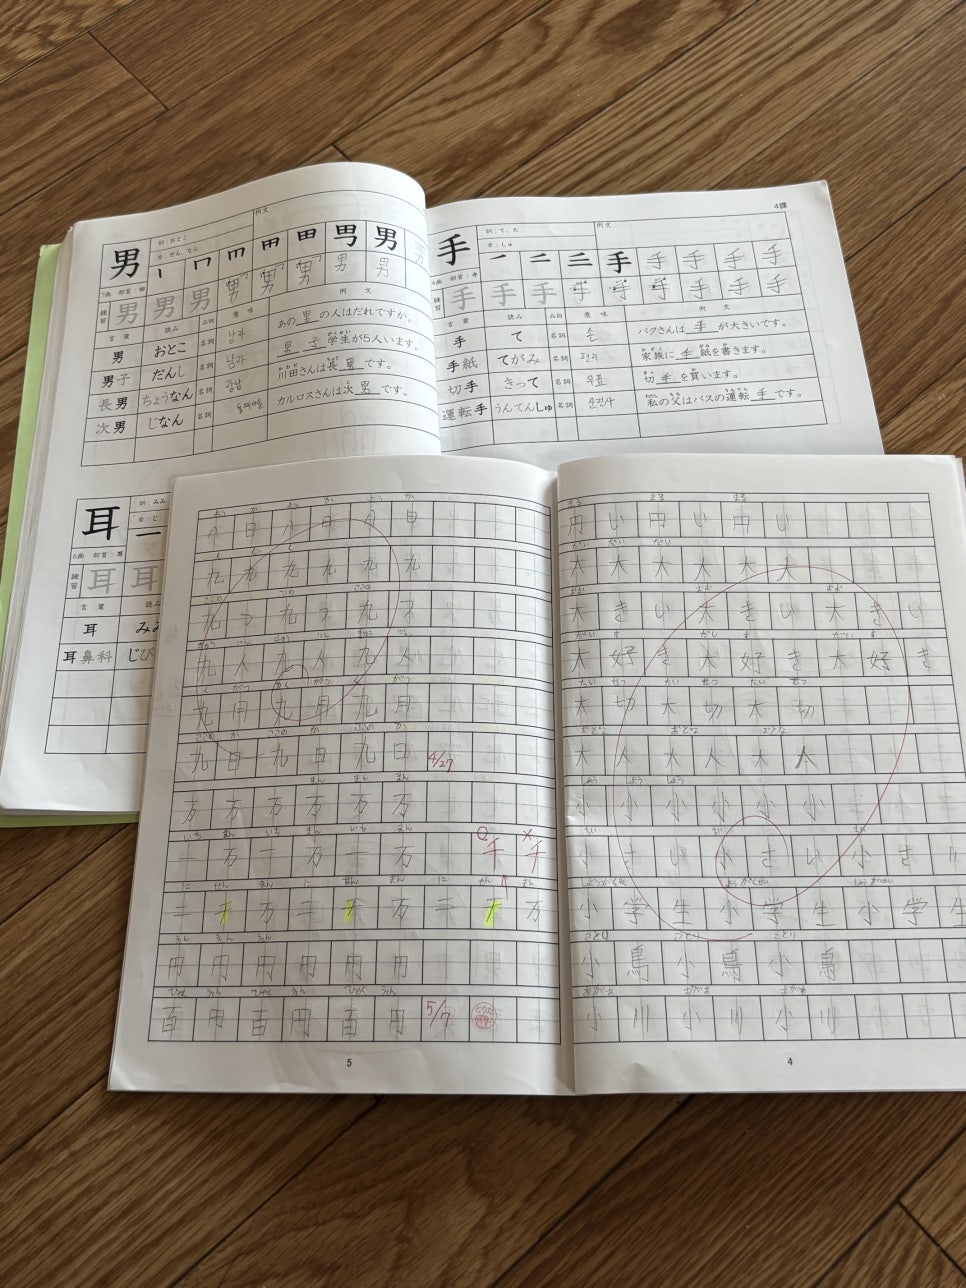 4課
男
訓：おとこ
音：だん、なん
例文
男
7画 部首：田
練習 男 男 男 男 男 男 男 男
言葉 読み 品詞 意味 例文
男 おとこ 名詞 남자 あの 男 の人はだれですか。
男子 だんし 名詞 남자 男 子 学生が5人います。
長男 ちょうなん 名詞 장남 川田さんは長 男 です。
次男 じなん 名詞 カルロスさんは次 男 です。
手
訓：て、た
音：しゅ
例文
一 二 三 手 手 手 手 手
4画 部首：手
練習 手 手 手 手 手 手 手 手 手
言葉 読み 品詞 意味 例文
手 て 名詞 손 パクさんは 手 が大きいです。
手紙 てがみ 名詞 편지 家族に 手 紙を書きます。
切手 きって 名詞 우표 切 手 を買います。
運転手 うんてんしゅ 名詞 운전사 私の父はバスの運転 手 です。
耳
訓：みみ
音：じ
6画 部首：耳
練習 耳 耳
言葉 読み
耳 みみ
耳鼻科 じび
八 日 八 日 八 日
九 九 九 九 九 九
九 つ 九 つ 九 つ
九 人 九 人 九 人
九 月 九 月 九 月
九 日 九 日 九 日 4/27
万 万 万 万 万 万
一 万 一 万 一 万 千 千
二 千 万 二 千 万 二 千 万
円 円 円 円 円 円
百 円 百 円 百 円 5/7
5
円 い 円 い 円 い
大 大 大 大 大 大
大 き い 大 き い 大 き い
大 好 き 大 好 き 大 好 き
大 切 大 切 大 切
大 人 大 人 大 人
小 小 小 小 小 小
小 さ い 小 さ い 小 さ い
小 学 生 小 学 生 小 学 生
小 鳥 小 鳥 小 鳥
小 川 小 川 小 川
4